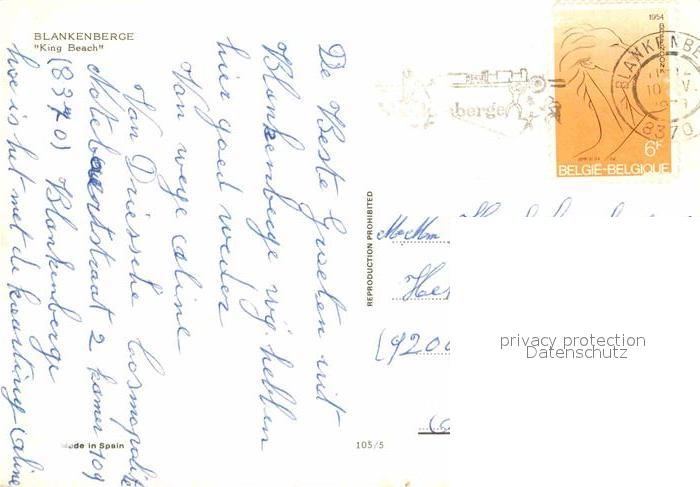 BLANKENBERGE
"King Beach"
De Beste Groeten uit
Blankenberge wij hebben
hier goed weder
Van wege Celine
Van Driessche Cosmopolite
straat 2 kamer 109
(8370) Blankenberge
hoe is het met de Celine
Made in Spain
105/5
REPRODUCTION PROHIBITED
1954
6F
BELGIË-BELGIQUE
BLANKENBE
8370
nberge
M+Mm
(9200
privacy protection
Datenschutz